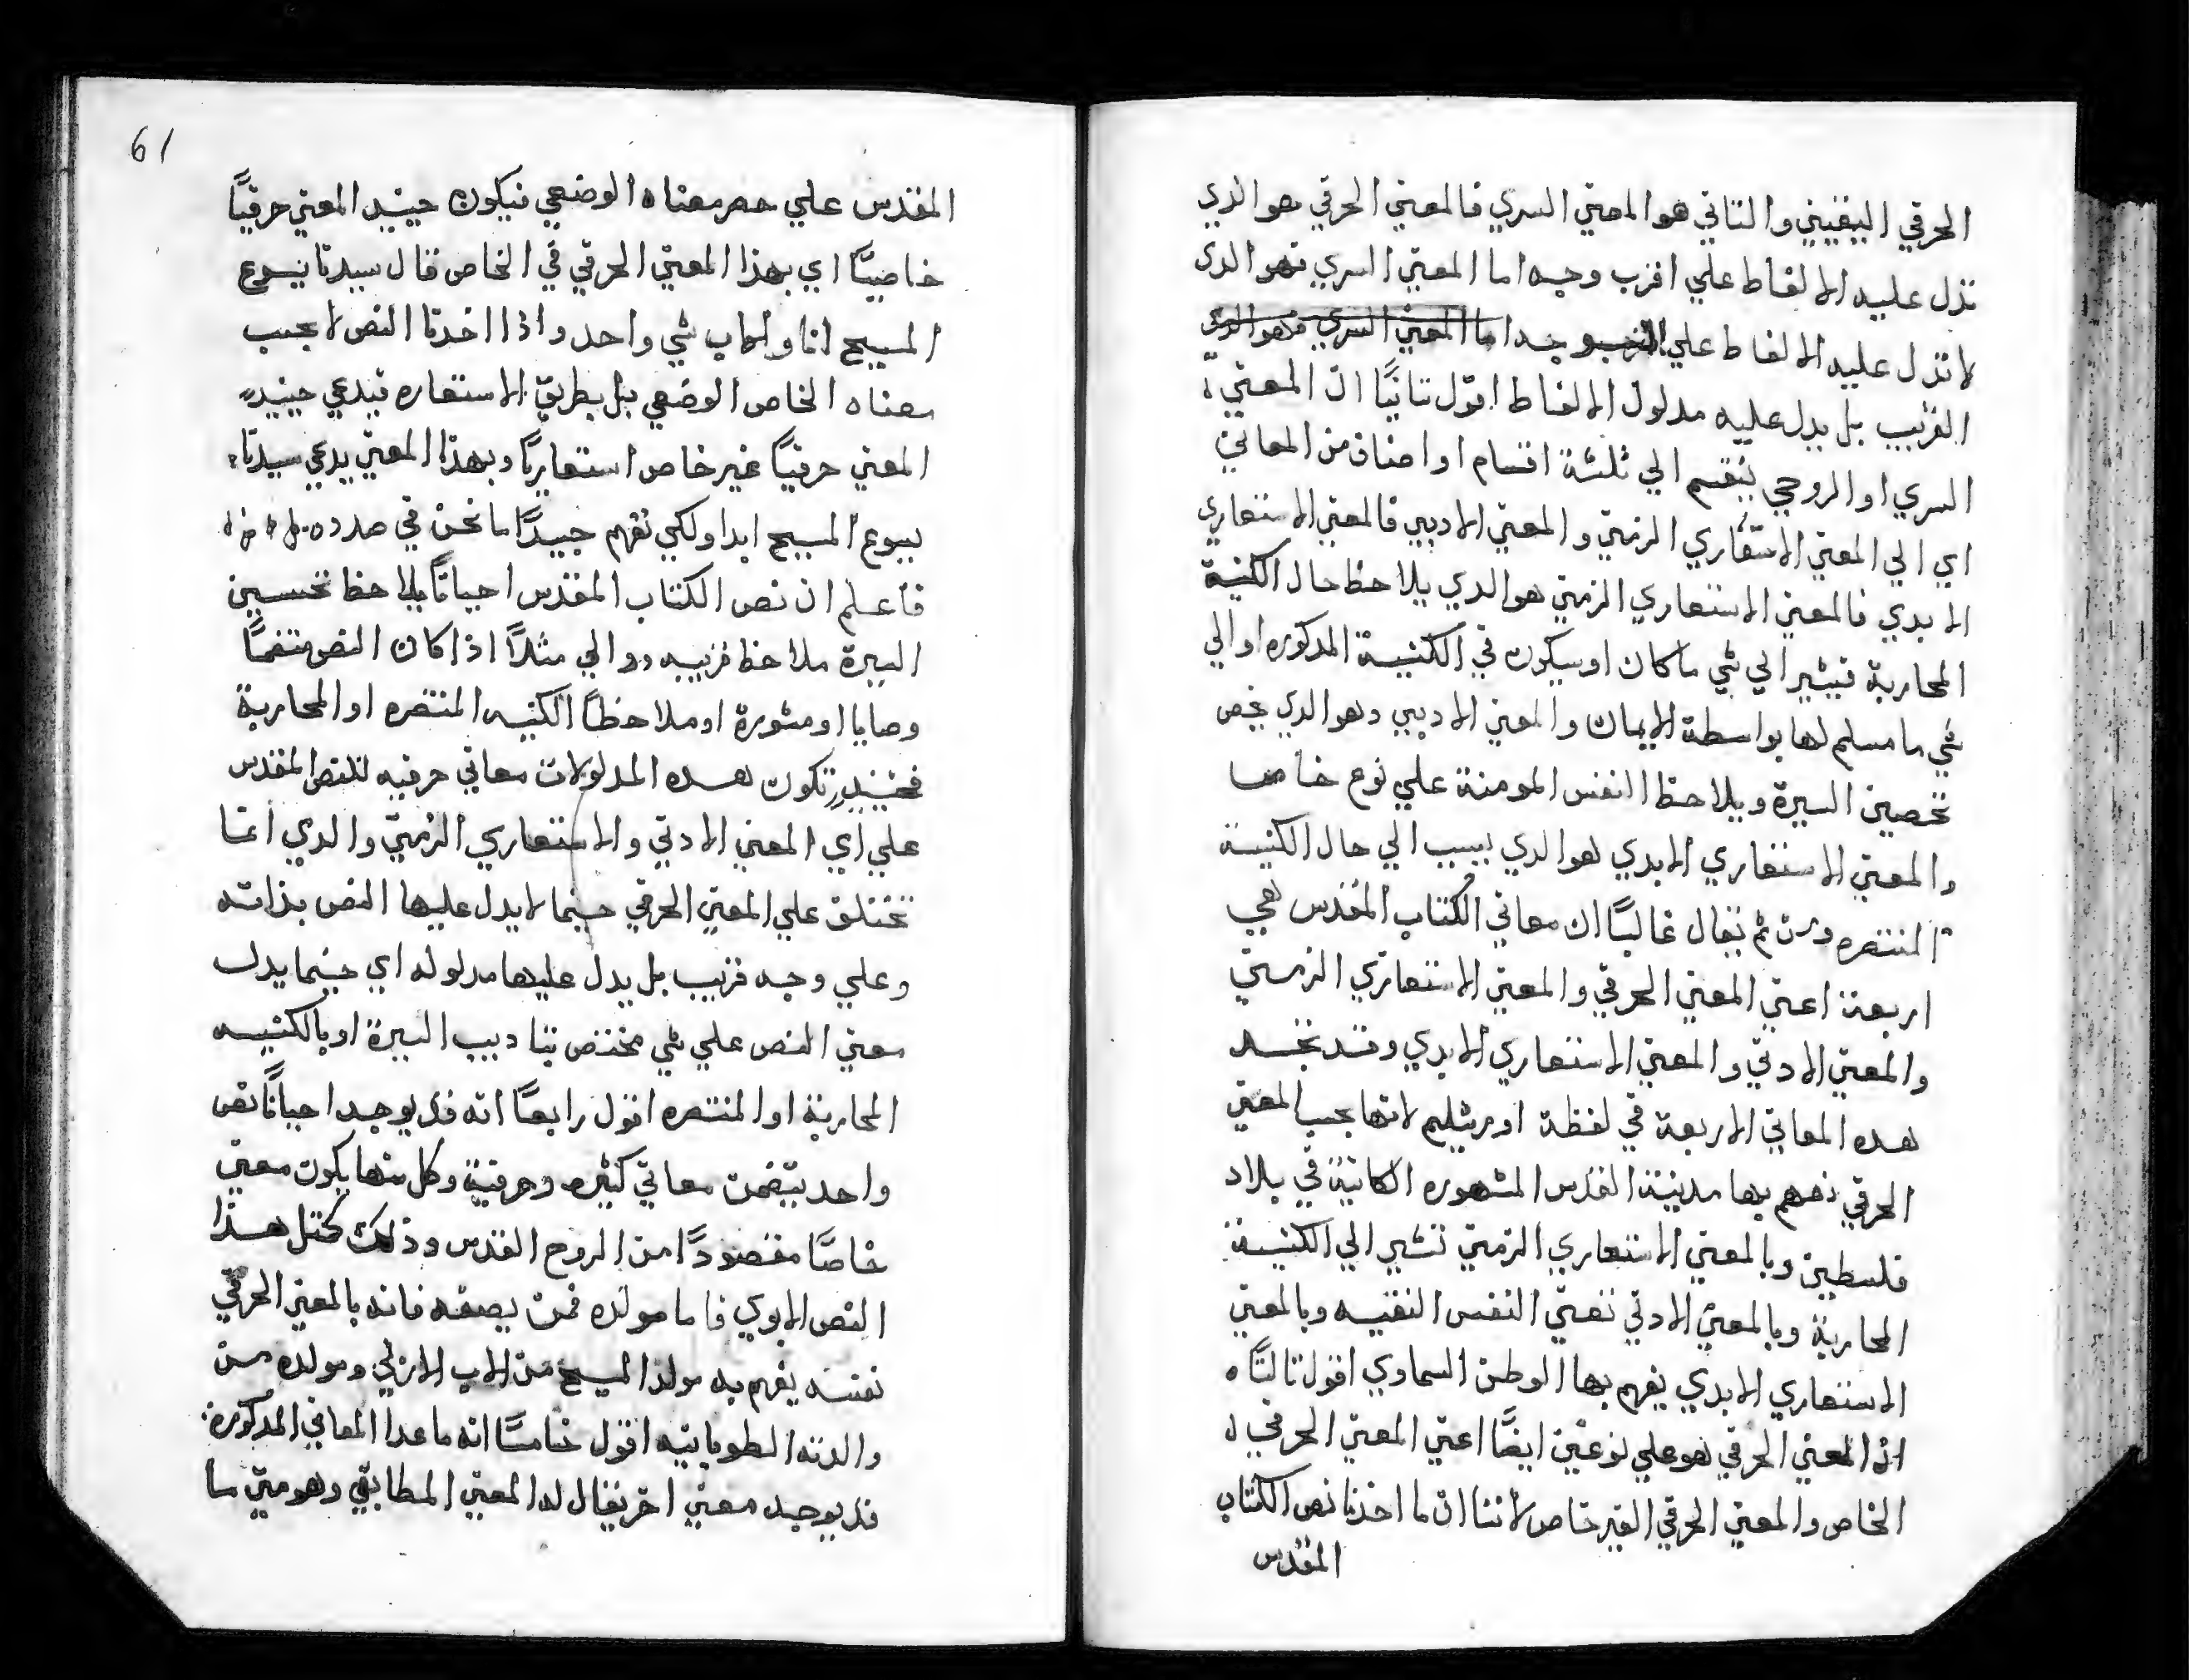 الحرفي اليقيني والتاني هو المعني السري فالمعني الحرفي هو الدي
تدل عليه الالفاط علي اقرب وجه اما المعني السري فهو الدي
لا تدل عليه الالفاط علي القرب وجه اما المعني السري فهو الدي
القريب بل يدل عليه مدلول الالفاط اقول تانيًا ان المعني
السري او الروحي ينقسم الي ثلثة اقسام او اصناف من المعاني
اي الي المعني الاستعاري الزمني والمعني الادبي فالمعني الاستعاري
الابدي فالمعني الاستعاري الزمني هو الدي يلاحظ حال الكنيسة
المحاربة فيشير الي شي ما كان او سيكون في الكنيسة المدكوره او الي
شي ما مسلم لها بواسطة الايمان والمعني الادبي وهو الدي يخص
تحصين السيرة ويلاحظ النفس المومنة علي نوع خاص
والمعني الاستعاري الابدي هو الدي ينسب الي حال الكنيسة
المنتصره ومن ثم يقال غالبًا ان معاني الكتاب المقدس هي
اربعة اعني المعني الحرفي والمعني الاستعاري الزمني
والمعني الادبي والمعني الاستعاري الابدي وقد نجد
هده المعاني الاربعة في لفظة اورشليم لانها بحسب المعني
الحرفي نفهم بها مدينة القدس المشهوره الكاينة في بلاد
فلسطين وبالمعني الاستعاري الزمني تشير الي الكنيسة
المحاربة وبالمعني الادبي تعني النفس النقيه وبالمعني
الاستعاري الابدي يفهم بها الوطن السماوي اقول تالتًا
ان المعني الحرفي هو علي نوعين ايضًا اعني المعني الحرفي
الخاص والمعني الحرفي الغير خاص لاننا ان ما اخدنا نص الكتاب
المقدس
61
المقدس علي حصر معناه الوضعي فيكون حينيد المعني حرفيًا
خاصيًا اي بهذا المعني الحرفي في الخاص قال سيدنا يسوع
المسيح انا والاب شي واحد واذا اخدنا النص لا بحسب
معناه الخاص الوضعي بل بطريق الاستعاره فيدعي حينيد
المعني حرفيًا غير خاص استعاريًا وبهذا المعني يدعي سيدنا
يسوع المسيح ابدا ولكي تفهم جيدًا ما نحن في صدده
فاعلم ان نص الكتاب المقدس احيانًا يلاحظ تحسين
السيرة ملاحظ قريبه دوالي مثلاً اذا كان النص متضمنًا
وصايا او مشورة او ملاحظًا الكنيسه المنتصره او المحاربة
فحينيد تكون هده المدلولات معاني حرفيه للنص المقدس
علي اي المعني الادبي والاستعاري الزمني والدي انما
تختلف علي المعني الحرفي حينما لا يدل عليها النص بذاته
وعلي وجه قريب بل يدل عليها مدلوله اي حينما يدل
معني النص علي شي مختص بتاديب السيرة او بالكنيسه
المحاربة او المنتصره اقول رابعًا انه قد يوجد احيانًا نص
واحد يتضمن معاني كثيره وحرفية وكل منها يكون معني
خاصًا مقصودًا من الروح القدس وذلك كمتل هذا
النص الابوي فاما مولده فمن يصفه فانه بالمعني الحرفي
نفسه يفهم به مولد المسيح من الاب الازلي ومولده من
والدته الطوباويه اقول خامسًا انه ما عدا المعاني المدكورة
قد يوجد معني اخر يقال له المعني المطابقي وهو متي ما